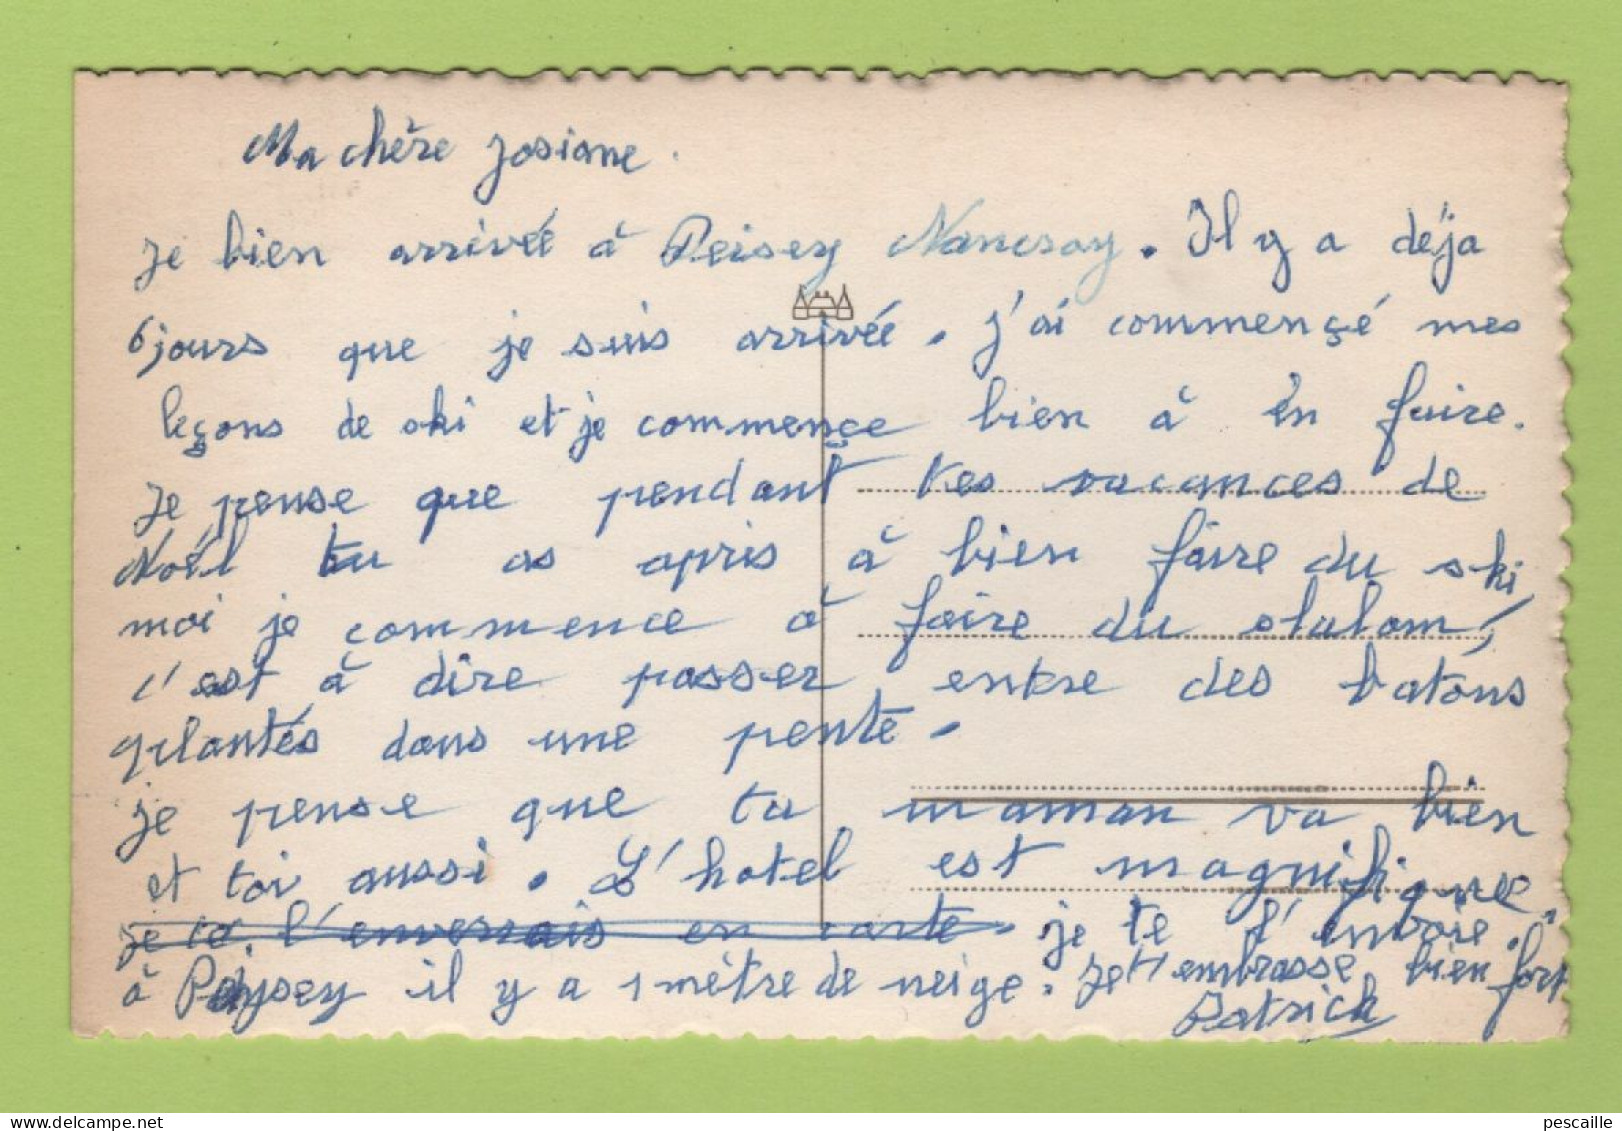 Ma chère Josiane.
Je bien arrivée à Peisey Nancroy. Il y a déja
6 jours que je suis arrivée. J'ai commençé mes
leçons de ski et je commençe bien à en faire.
Je pense que pendant tes vacances de
Noël tu as apris à bien faire du ski,
moi je commence à faire du slalom,
c'est à dire passer entre des batons
plantés dans une pente.
je pense que ta maman va bien
et toi aussi. L'hotel est magnifique
je te l'enverrais en carte. je te l'envoie.
à Peisey il y a 1 mètre de neige. Je t'embrasse bien fort
Patrick
pescaille